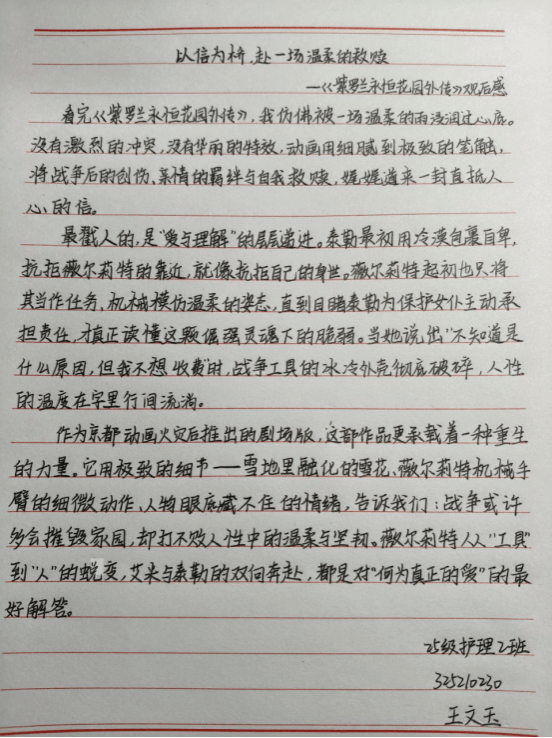 以信为桥,赴一场温柔的救赎
——《紫罗兰永恒花园外传》观后感
看完《紫罗兰永恒花园外传》,我仿佛被一场温柔的雨浸润过心底。
没有激烈的冲突,没有华丽的特效,动画用细腻到极致的笔触,
将战争后的创伤、亲情的羁绊与自我救赎,娓娓道来一封直抵人
心的信。
最戳人的,是"爱与理解"的层层递进。泰勒最初用冷漠包裹自卑,
抗拒薇尔莉特的靠近,就像抗拒自己的身世。薇尔莉特起初也只将
其当作任务、机械模仿温柔的姿态,直到目睹泰勒为保护女仆主动承
担责任,才真正读懂这颗倔强灵魂下的脆弱。当她说出"不知道是
什么原因,但我不想收费"时,战争工具的冰冷外壳彻底破碎,人性
的温度在字里行间流淌。
作为京都动画火灾后推出的剧场版,这部作品更承载着一种重生
的力量。它用极致的细节——雪地里融化的雪花、薇尔莉特机械手
臂的细微动作、人物眼底藏不住的情绪,告诉我们:战争或许
会摧毁家园,却打不败人性中的温柔与坚韧。薇尔莉特从"工具"
到"人"的蜕变,艾米与泰勒的双向奔赴,都是对"何为真正的爱"的最
好解答。
25级护理2班
325210230
王文玉